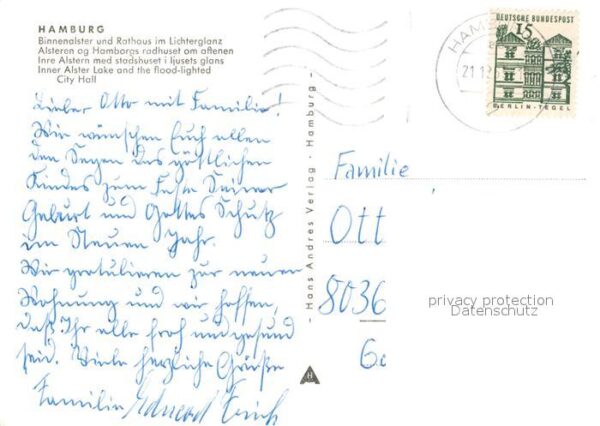 HAMBURG
Binnenalster und Rathaus im Lichterglanz
Alsteren og Hamborgs radhuset om aftenen
Inre Alstern med stadshuset i ljusets glans
Inner Alster Lake and the flood-lighted
City Hall
Lieber Otto mit Familie!
Wir wünschen Euch allen
den Segen des göttlichen
Kindes zum Feste Seiner
Geburt und Gottes Schutz
im Neuen Jahr.
Wir gratulieren zur neuen
Wohnung und wir hoffen,
daß Ihr alle froh und gesund
seid. Viele herzliche Grüße
Familie Eduard
- Hans Andres Verlag · Hamburg -
H
HAMB
21.12.6
DEUTSCHE BUNDESPOST
15
BERLIN-TEGEL
Familie
Ott
8036
privacy protection
Datenschutz